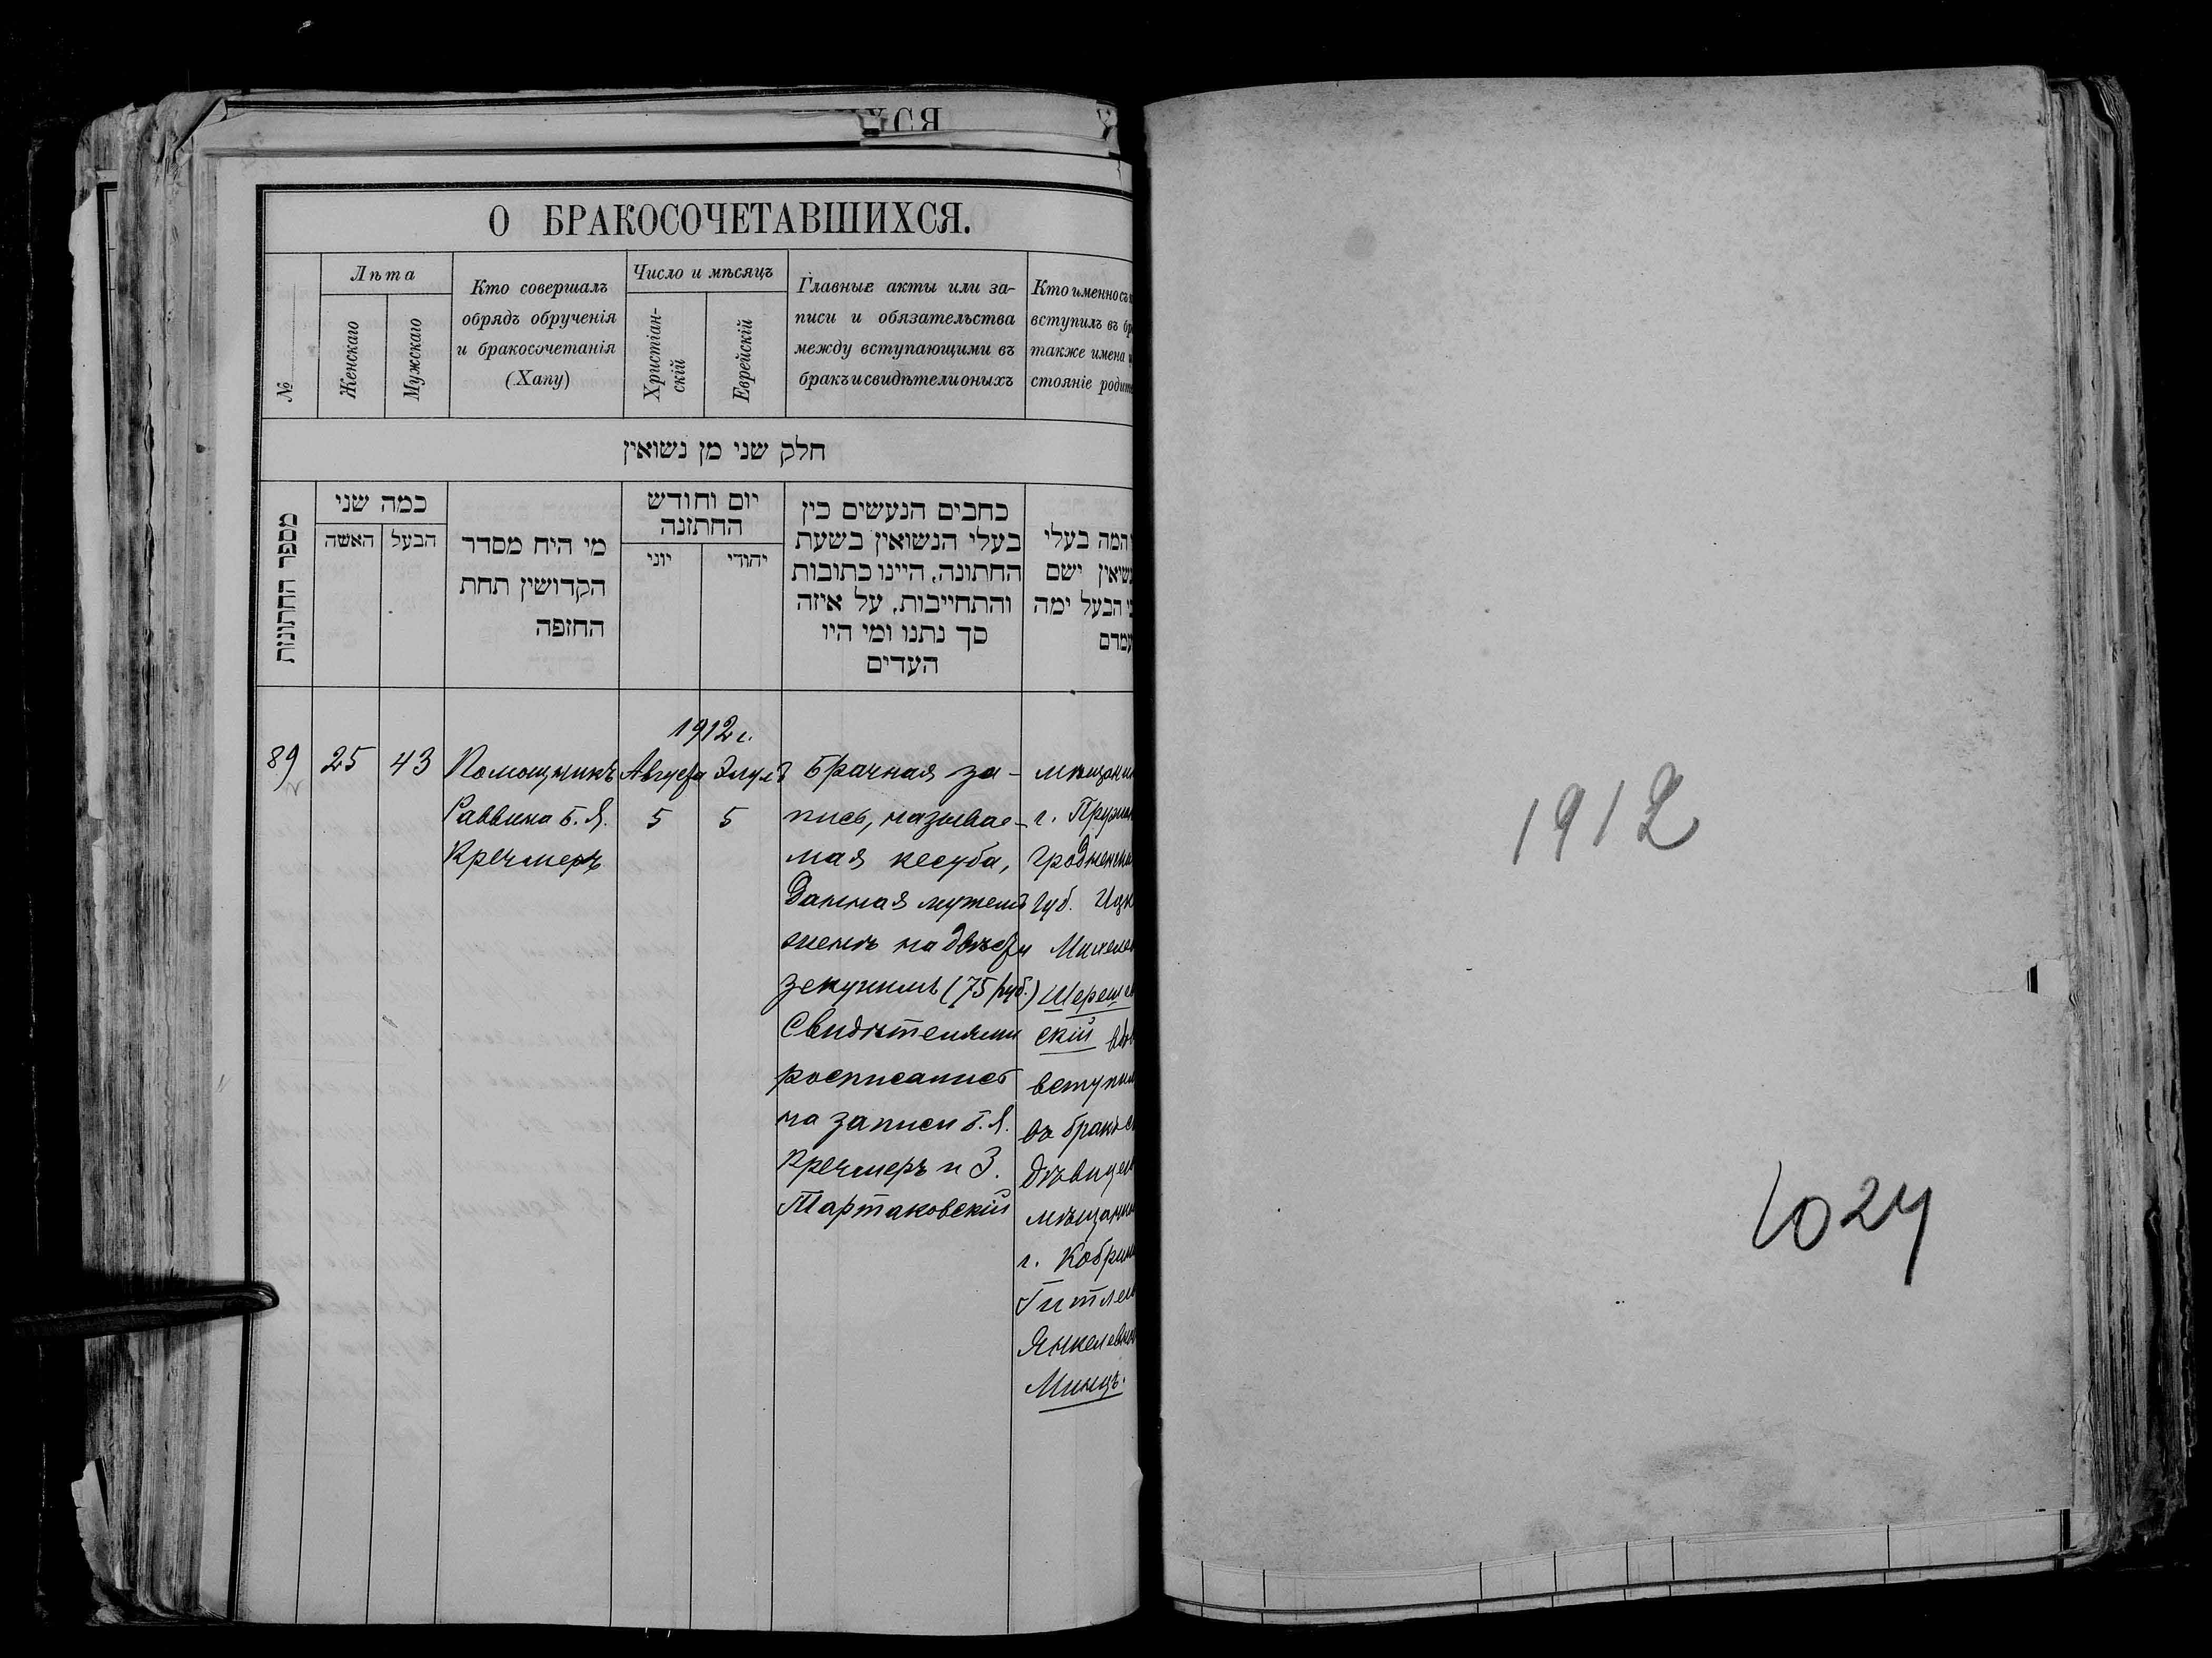 ХСЯ
О БРАКОСОЧЕТАВШИХСЯ.
№
Лѣта
Женскаго
Мужскаго
Кто совершалъ
обрядъ обрученія
и бракосочетанія
(Хапу)
Число и мѣсяцъ
Христіан-
скій
Еврейскій
Главные акты или за-
писи и обязательства
между вступающими въ
бракъ и свидѣтели оныхъ
Кто именно съ
вступилъ въ бр
также имена и
стояніе родите
חלק שני מן נשואין
מספר החתונות
כמה שני
האשה
הבעל
מי היח מסדר
הקדושין תחת
החופה
יום וחודש
החתזנה
יוני
יהודי
כחבים הנעשים כין
בעלי הנשואין בשעת
החתונה, היינו כתובות
והתחייבות, על איזה
סך נתנו ומי היו
העדים
המה בעלי
נשואין ישם
הבעל ימה
עמדם
1912 г.
89
25
43
Помощникъ
Раввина Б. Я.
Кречмеръ
Августа
5
Элулъ
5
Брачная за-
пись, называе-
мая кесуба,
данная мужемъ
женѣ на двѣсти
зекукимъ (75 руб.)
Свидѣтелями
росписались
на записи Б. Я.
Кречмеръ и З.
Тартаковскій
мѣщанин
г. Пружан
Гродненско
Губ. Ицк
Михелев
Шерешев
скій вдов
вступил
въ бракъ с
дѣвицею
мѣщанко
г. Кобрина
Гитлею
Янкелевною
Минцъ.
1912
1024